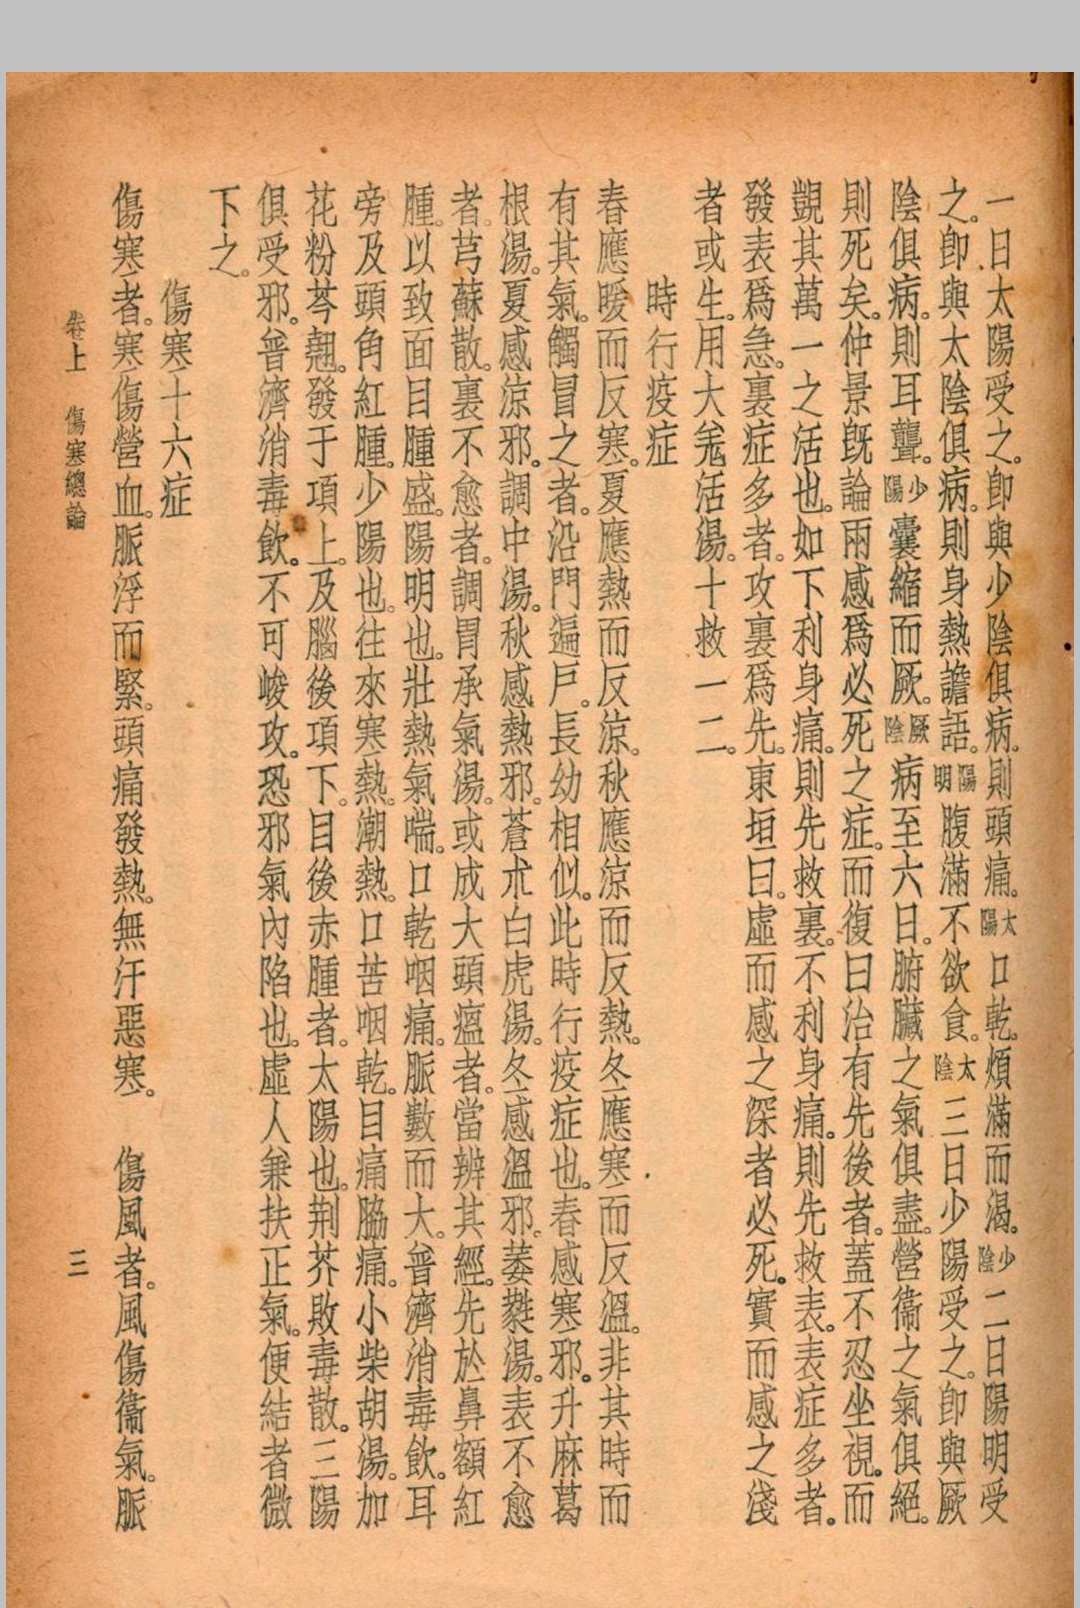 一日太陽受之。卽與少陰俱病。則頭痛。太陽口乾。煩滿而渴。少陰二日陽明受
之。卽與太陰俱病。則身熱譫語。陽明腹滿不欲食。太陰三日少陽受之。卽與厥
陰俱病。則耳聾。少陽囊縮而厥。厥陰病至六日。腑臟之氣俱盡。營衞之氣俱絕。
則死矣。仲景旣論兩感爲必死之症。而復曰治有先後者。蓋不忍坐視。而
覬其萬一之活也。如下利身痛。則先救裏。不利身痛。則先救表。表症多者。
發表爲急。裏症多者。攻裏爲先。東垣曰。虛而感之深者必死。實而感之淺
者或生。用大羌活湯。十救一二。
時行疫症
春應暖而反寒。夏應熱而反涼。秋應涼而反熱。冬應寒而反溫。非其時而
有其氣。觸冒之者。沿門遍戶。長幼相似。此時行疫症也。春感寒邪。升麻葛
根湯。夏感涼邪。調中湯。秋感熱邪。蒼朮白虎湯。冬感溫邪。萎蕤湯。表不愈
者。芎蘇散。裏不愈者。調胃承氣湯。或成大頭瘟者。當辨其經。先於鼻額紅
腫。以致面目腫盛。陽明也。壯熱氣喘。口乾咽痛。脈數而大。普濟消毒飲。耳
旁及頭角紅腫。少陽也。往來寒熱。潮熱。口苦咽乾。目痛脇痛。小柴胡湯。加
花粉芩翹。發于項上。及腦後項下。目後赤腫者。太陽也。荆芥敗毒散。三陽
俱受邪。普濟消毒飲。不可峻攻。恐邪氣內陷也。虛人兼扶正氣。便結者微
下之。
傷寒十六症
傷寒者。寒傷營血。脈浮而緊。頭痛發熱。無汗惡寒。　傷風者。風傷衞氣。脈
卷上　傷寒總論　三